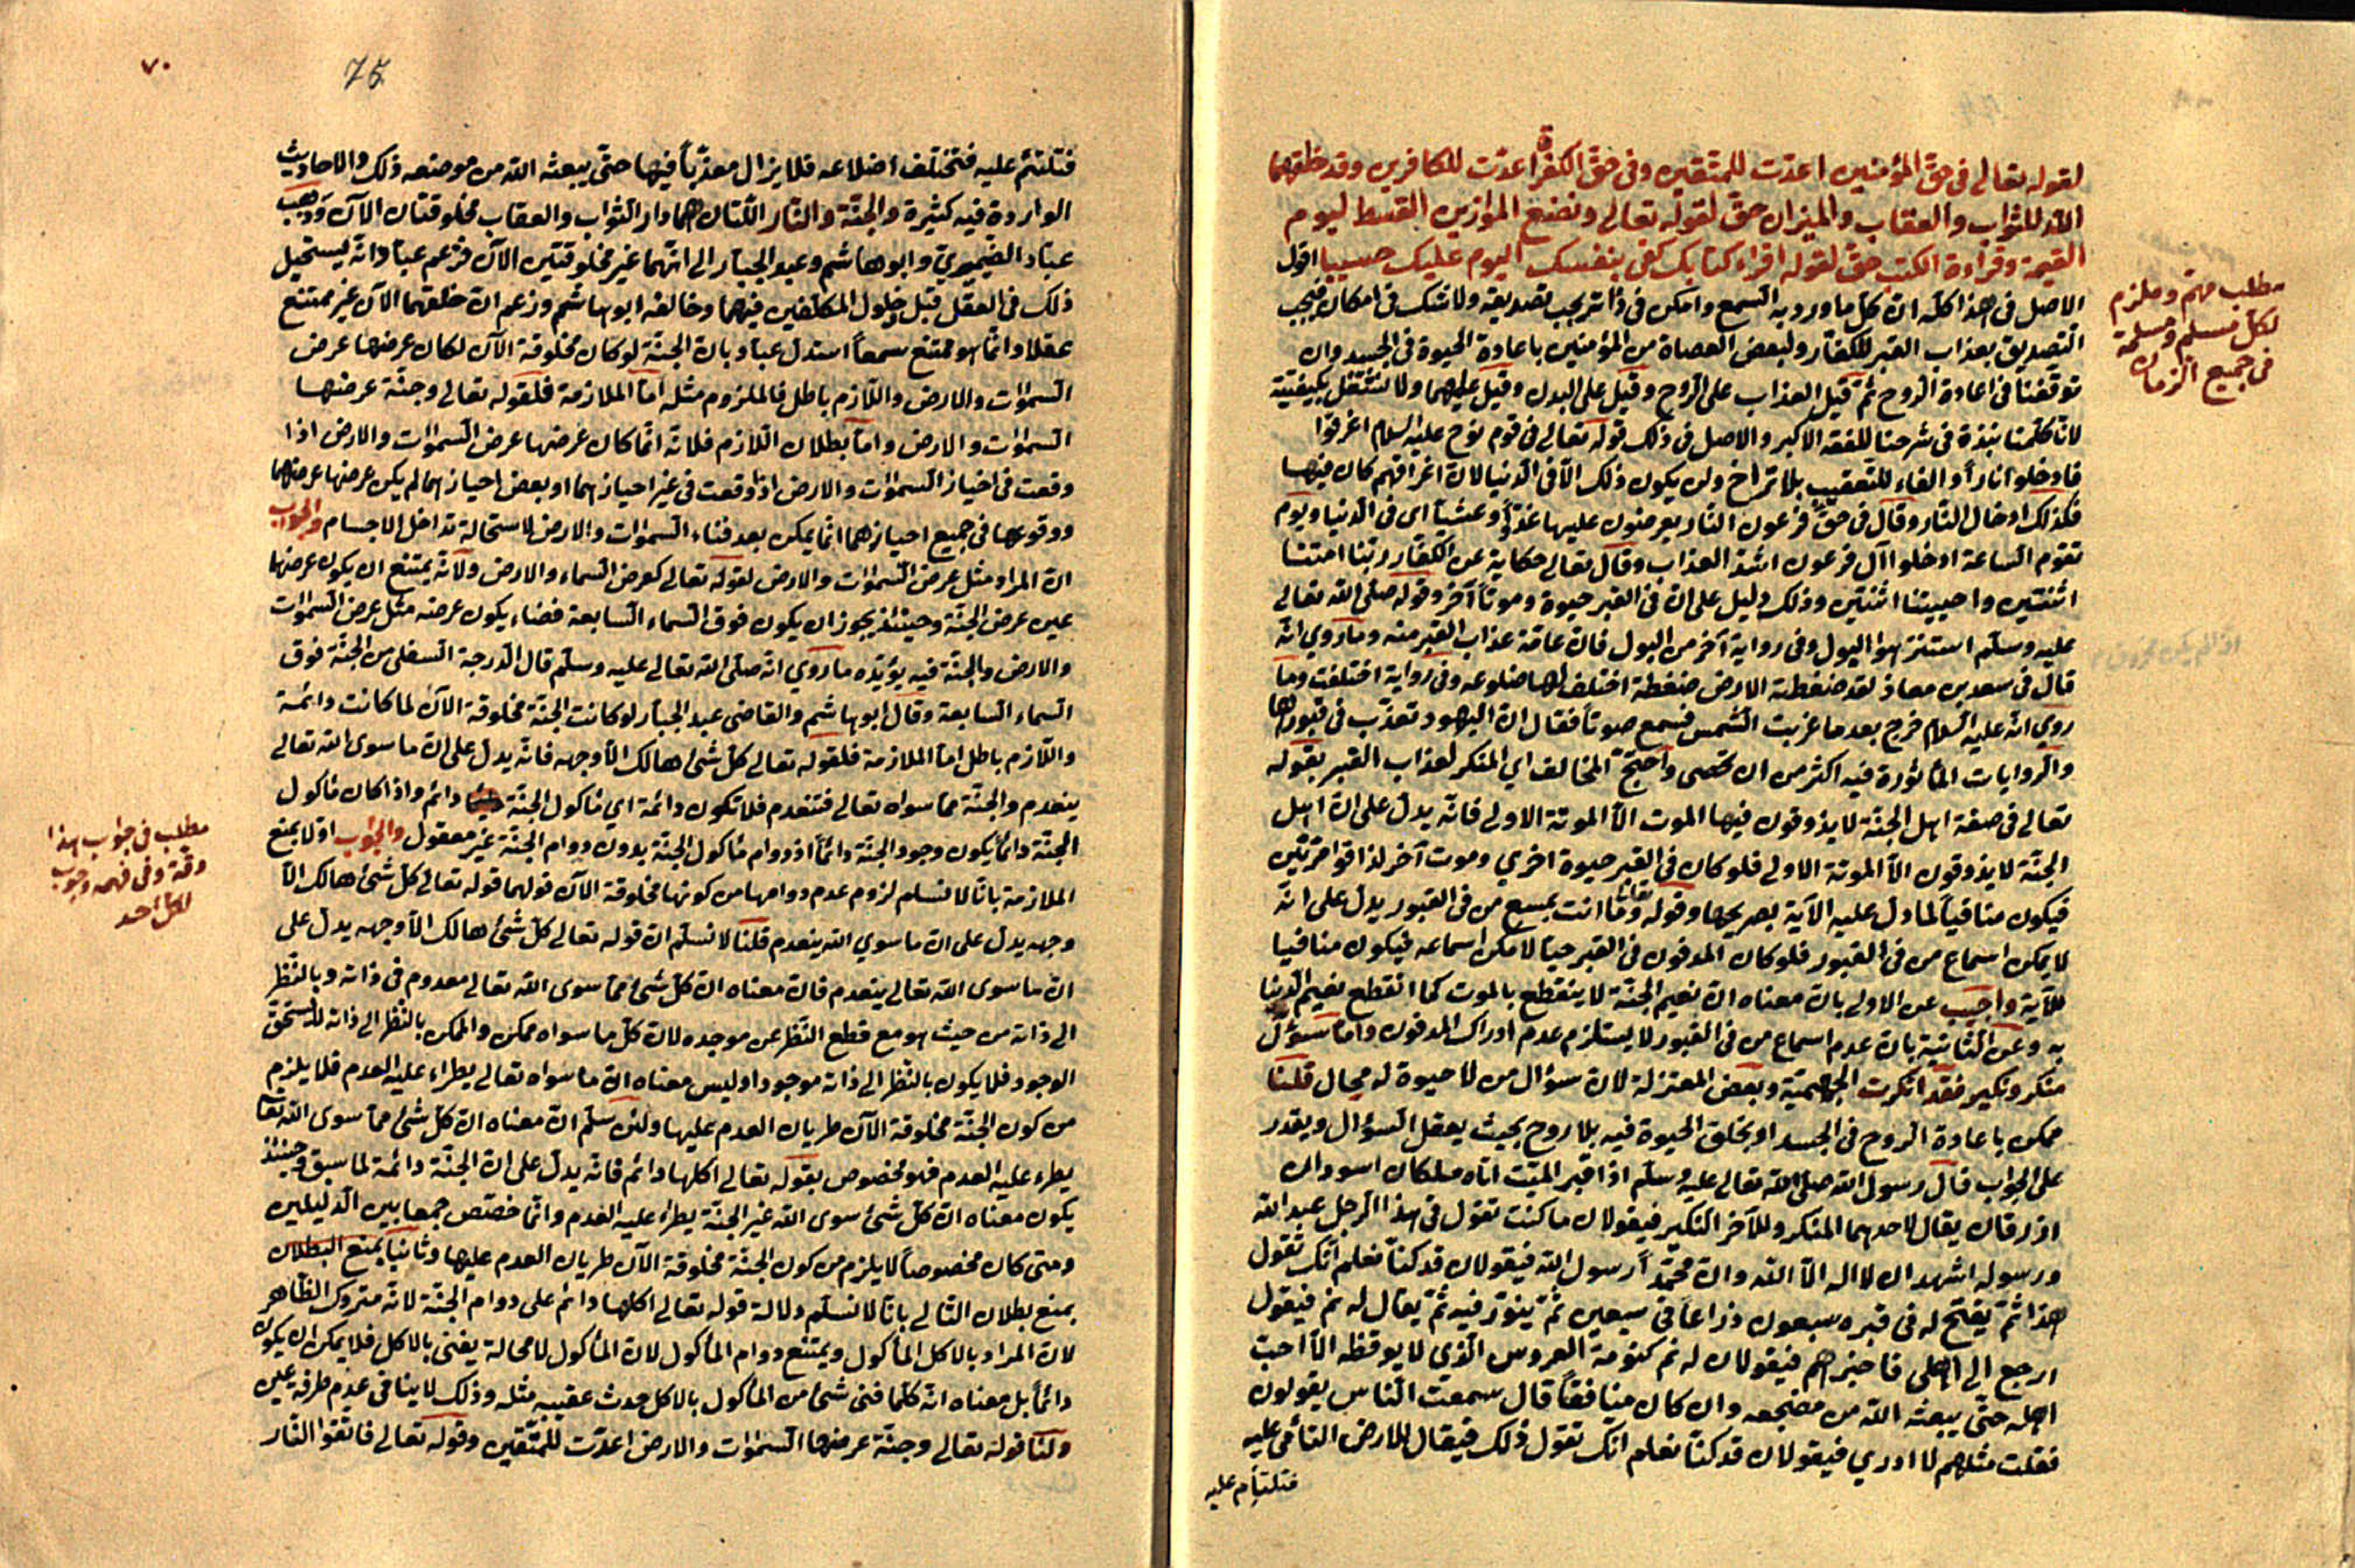 لقوله تعالى فى حق المؤمنين اعدت للمتقين وفى حق الكفرة اعدت للكافرين وقد خلقهما
الله للثواب والعقاب والميزان حق لقوله تعالى ونضع الموازين القسط ليوم
القيمة وقراءة الكتب حق لقوله اقراء كتابك كفى بنفسك اليوم عليك حسيبا اقول
الاصل فى هذا كله ان كل ما ورد به السمع وامكن فى ذاته يجب تصديقه ولا شك فى امكان فيجب
التصديق بعذاب القبر للكفار ولبعض العصاة من المؤمنين باعادة الحيوة فى الجسد وان
توقفنا فى اعادة الروح ثم قيل العذاب على الروح وقيل على البدن وقيل عليهما ولا نشتغل بكيفيته
لانا كلمنا نبذة فى شرحنا للفقه الاكبر والاصل فى ذلك قوله تعالى فى قوم نوح عليه السلام اغرقوا
فادخلوا نارا والفاء للتعقيب بلا تراخ ولن يكون ذلك الا فى الدنيا لان اغراقهم كان فيها
فكذلك ادخال النار وقال فى حق فرعون النار يعرضون عليها غدوا وعشيا اى فى الدنيا ويوم
تقوم الساعة ادخلوا آل فرعون اشد العذاب وقال تعالى حكاية عن الكفار ربنا امتنا
اثنتين واحييتنا اثنتين وذلك دليل على ان فى القبر حيوة وموتا آخر وقوله صلى الله تعالى
عليه وسلم استنزهوا البول وفى رواية آخر من البول فان عامة عذاب القبر منه وما روي انه
قال فى سعد بن معاذ لقد ضغطته الارض ضغطة اختلف لها ضلوعه وفى رواية اختلفت وما
روي انه عليه السلام خرج بعد ما غربت الشمس فسمع صوتا فقال ان اليهود تعذب فى قبورها
والروايات المأثورة فيه اكثر من ان تحصى واحتج المخالف اي المنكر لعذاب القبر بقوله
تعالى فى صفة اهل الجنة لا يذوقون فيها الموت الا الموتة الاولى فانه يدل على ان اهل
الجنة لا يذوقون الا الموتة الاولى فلو كان فى القبر حيوة اخري وموت آخر لذاقوا مرتين
فيكون منافيا لما دل عليه الآية بصريحها وقوله تعالى وما انت بمسمع من فى القبور يدل على انه
لا يمكن اسماع من فى القبور فلو كان المدفون فى القبر حيا لامكن اسماعه فيكون منافيا
للآية واجيب عن الاولى بان معناه ان نعيم الجنة لا ينقطع بالموت كما انقطع نعيم الدنيا
به وعن الثانية بان عدم اسماع من فى القبور لا يستلزم عدم ادراك المدفون واما سؤال
منكر ونكير فقد انكرت الجهمية وبعض المعتزلة لان سؤال من لا حيوة له محال قلنا
ممكن باعادة الروح فى الجسد او بخلق الحيوة فيه بلا روح بحيث يعقل السؤال ويقدر
على الجواب قال رسول الله صلى الله تعالى عليه وسلم اذا قبر الميت اتاه ملكان اسودان
ازرقان يقال لاحدهما المنكر وللآخر النكير فيقولان ما كنت تقول فى هذا الرجل عبد الله
ورسوله اشهد ان لا اله الا الله وان محمدا رسول الله فيقولان قد كنا نعلم انك تقول
هذا ثم يفتح له فى قبره سبعون ذراعا فى سبعين ثم ينور فيه ثم يقال له نم فيقول
ارجع الى اهلى فاخبرهم فيقولان له نم كنومة العروس الذي لا يوقظه الا احب
اهله حتى يبعثه الله من مضجعه وان كان منافقا قال سمعت الناس يقولون
فقلت مثلهم لا ادري فيقولان قد كنا نعلم انك تقول ذلك فيقال للارض التأمى عليه
فتلتأم عليه
مطلب مهم وملزم
لكل مسلم ومسلمة
فى جميع الزمان
٧٠
75
فتلتئم عليه فتختلف اضلاعه فلا يزال معذبا فيها حتى يبعثه الله من موضعه ذلك والاحاديث
الواردة فيه كثيرة والجنة والنار اللتان هما دار الثواب والعقاب مخلوقتان الآن وذهب
عباد الضيمري وابو هاشم وعبد الجبار الى انهما غير مخلوقتين الآن فزعم عباد انه يستحيل
ذلك فى العقل قبل دخول المكلفين فيهما وخالفه ابو هاشم وزعم ان خلقهما الآن غير ممتنع
عقلا وانما هو ممتنع سمعا استدل عباد بان الجنة لو كان مخلوقة الآن لكان عرضها عرض
السموات والارض واللازم باطل فالملزوم مثله اما الملازمة فلقوله تعالى وجنة عرضها
السموات والارض واما بطلان اللازم فلانه انما كان عرضها عرض السموات والارض اذا
وقعت فى احياز السموات والارض اذا وقعت فى غير احيازهما او بعض احيازهما لم يكن عرضها عرضهما
ووقوعها فى جميع احيازهما انما يمكن بعد فناء السموات والارض لاستحالة تداخل الاجسام والجواب
ان المراد مثل عرض السموات والارض لقوله تعالى كعرض السماء والارض ولانه يمتنع ان يكون عرضها
عين عرض الجنة وحينئذ يجوز ان يكون فوق السماء السابعة فضاء يكون عرضه مثل عرض السموات
والارض والجنة فيه يؤيده ما روي انه صلى الله تعالى عليه وسلم قال الدرجة السفلى من الجنة فوق
السماء السابعة وقال ابو هاشم والقاضى عبد الجبار لو كانت الجنة مخلوقة الآن لما كانت دائمة
واللازم باطل اما الملازمة فلقوله تعالى كل شئ هالك الا وجهه فانه يدل على ان ما سوى الله تعالى
ينعدم والجنة مما سواه تعالى فتنعدم فلا تكون دائمة اي مأكول الجنة دائم واذا كان مأكول
الجنة دائما يكون وجود الجنة دائما اذ دوام مأكول الجنة بدون دوام الجنة غير معقول والجواب اولا بمنع
الملازمة بانا لا نسلم لزوم عدم دوامها من كونها مخلوقة الآن قولهما قوله تعالى كل شئ هالك الا
وجهه يدل على ان ما سوي الله ينعدم قلنا لا نسلم ان قوله تعالى كل شئ هالك الا وجهه يدل على
ان ما سوى الله تعالى ينعدم فان معناه ان كل شئ مما سوى الله تعالى معدوم فى ذاته وبالنظر
الى ذاته من حيث هو مع قطع النظر عن موجده لان كل ما سواه ممكن والممكن بالنظر الى ذاته لا يستحق
الوجود فلا يكون بالنظر الى ذاته موجودا وليس معناه ان ما سواه تعالى يطراء عليه العدم فلا يلزم
من كون الجنة مخلوقة الآن طريان العدم عليها ولئن سلم ان معناه ان كل شئ مما سوى الله تعا
يطرء عليه العدم فهو مخصوص بقوله تعالى اكلها دائم فانه يدل على ان الجنة دائمة لما سبق وحينئذ
يكون معناه ان كل شئ سوى الله غير الجنة يطراء عليه العدم وانما خصص جمعا بين الدليلين
ومتى كان مخصوصا لا يلزم من كون الجنة مخلوقة الآن طريان العدم عليها وثانيا بمنع البطلان
بمنع بطلان التالى بانا لا نسلم دلالة قوله تعالى اكلها دائم على دوام الجنة لانه متروك الظاهر
لان المراد بالاكل المأكول ويمتنع دوام المأكول لان المأكول لا محالة يفنى بالاكل فلا يمكن ان يكون
دائما بل معناه انه كلما فنى شئ من المأكول بالاكل حدث عقيبه مثله وذلك لا ينافى عدم طرفة عين
ولنا قوله تعالى وجنة عرضها السموات والارض اعدت للمتقين وقوله تعالى فاتقوا النار
مطلب فى جواب هذا
وقة وفى فهمه وجوب
لكل احد